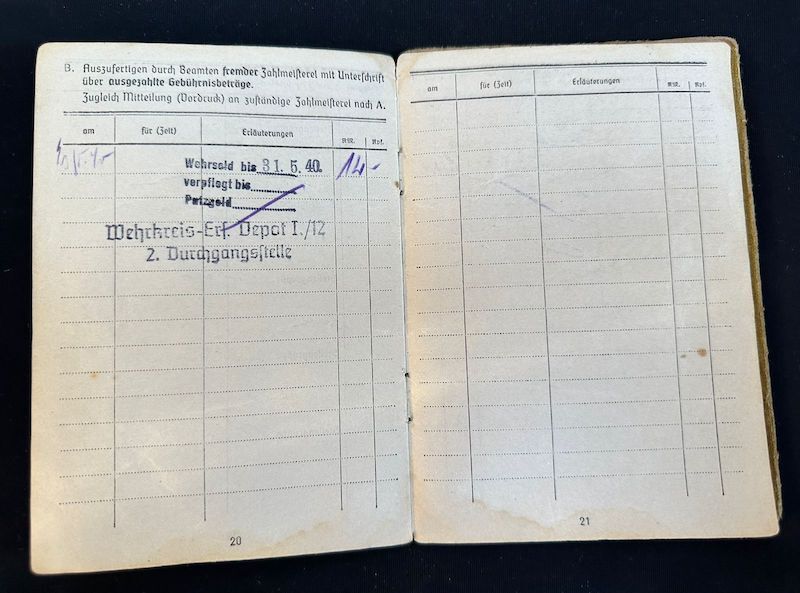 B. Auszufertigen durch Beamten fremder Zahlmeisterei mit Unterschrift
über ausgezahlte Gebührnisbeträge.
Zugleich Mitteilung (Vordruck) an zuständige Zahlmeisterei nach A.
am für (Zeit) Erläuterungen RM. Rpf.
Wehrsold bis 31. 5. 40. 14.-
verpflegt bis
Putzgeld
Wehrkreis-Ers. Depot I./12
2. Durchgangsstelle
20
am für (Zeit) Erläuterungen RM. Rpf.
21